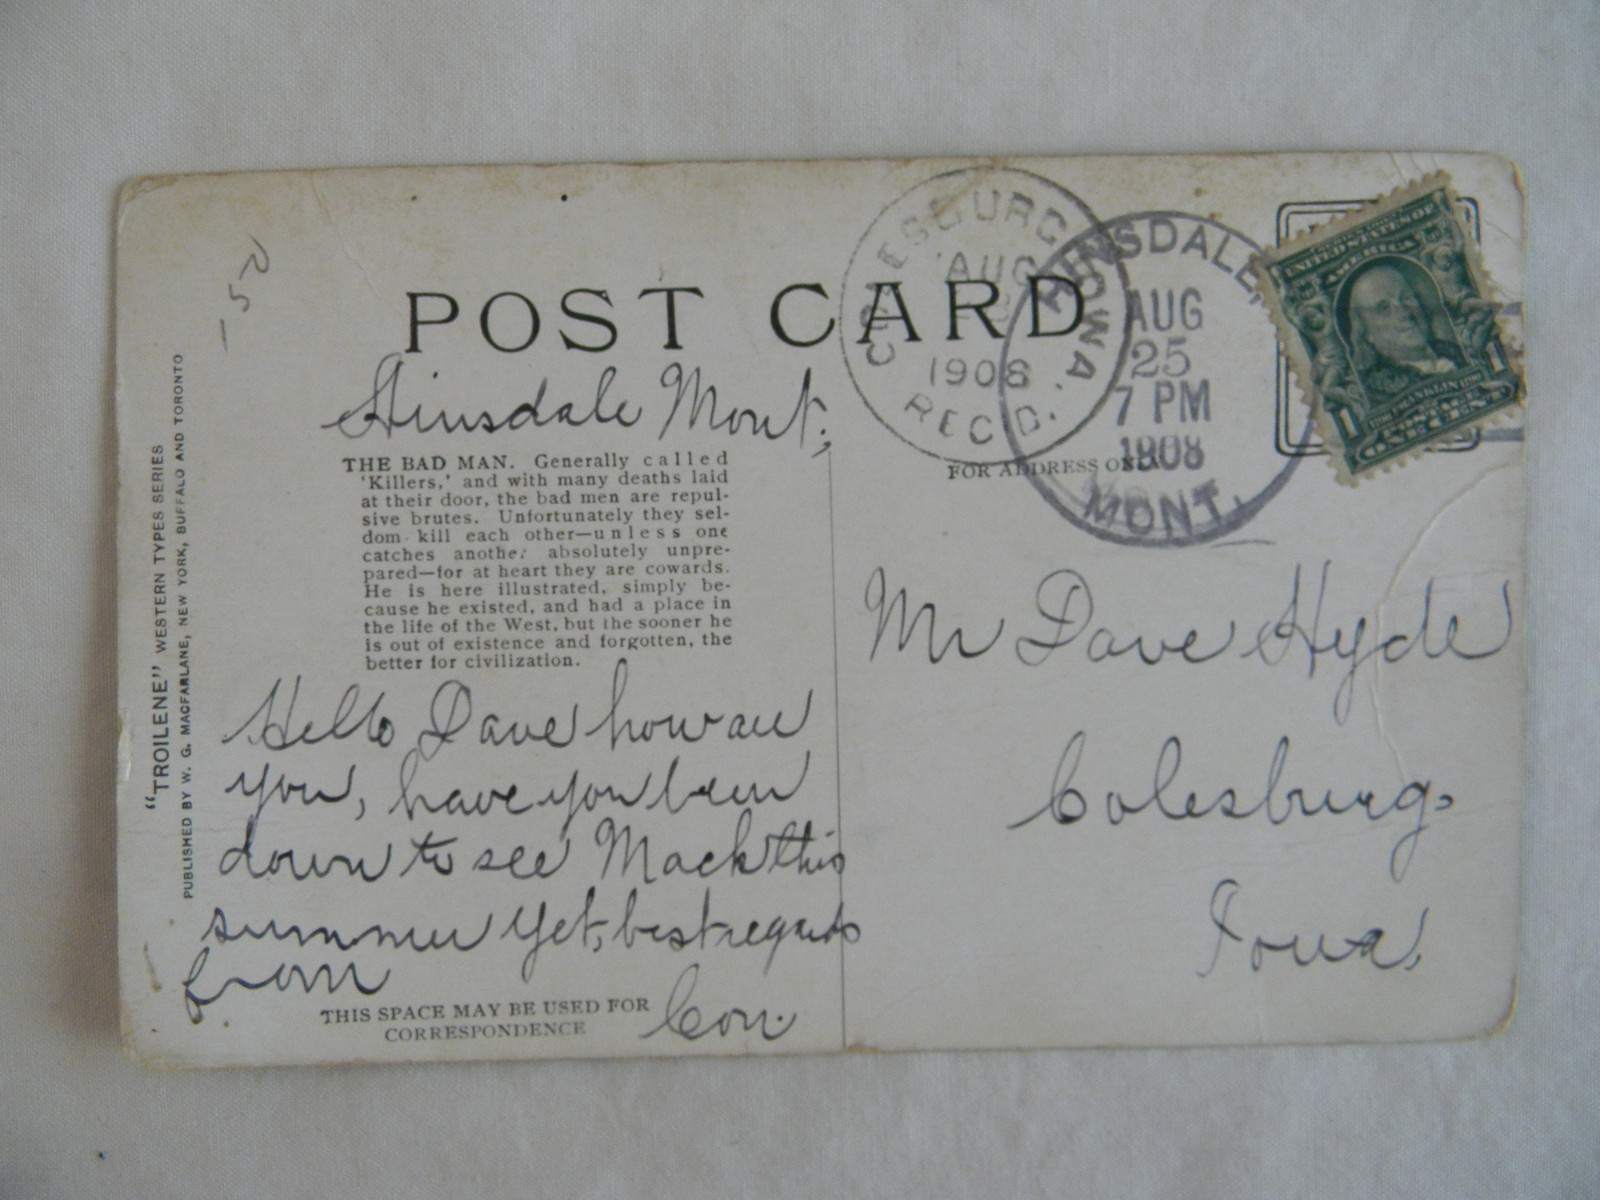 -50
POST CARD
COLESBURG IOWA.
AUG
1908
REC'D.
HINSDALE,
AUG
25
7 PM
1908
MONT.
UNITED STATES OF
AMERICA
1 1
FRANKLIN
POSTAGE
ONE CENT
Hinsdale Mont.,
THE BAD MAN. Generally called
'Killers,' and with many deaths laid
at their door, the bad men are repul-
sive brutes. Unfortunately they sel-
dom kill each other—unless one
catches another absolutely unpre-
pared—for at heart they are cowards.
He is here illustrated, simply be-
cause he existed, and had a place in
the life of the West, but the sooner he
is out of existence and forgotten, the
better for civilization.
Hello Dave how are
you, have you been
down to see Mack this
summer yet, best regards
from
Con.
THIS SPACE MAY BE USED FOR
CORRESPONDENCE
FOR ADDRESS ONLY
Mr Dave Hyde
Colesburg,
Iowa,
"TROILENE" WESTERN TYPES SERIES
PUBLISHED BY W. G. MACFARLANE, NEW YORK, BUFFALO AND TORONTO